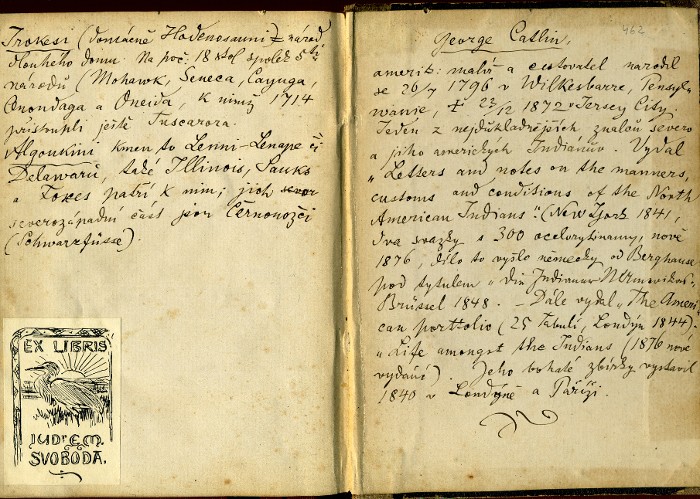 Irokesi (domácně Hodenosauni) národ
dlouhého domu. Na poč. 18 stol spolek 5ti
národů (Mohawk, Seneca, Cayuga,
Onondaga a Oneida, k nimž 1714
přistoupli ještě Tuscarora.
Algonkini kmen to Lenni-Lenape či
Delawarů, také Illinois, Sauks
a Foxes patří k nim; jich sever
severozápadní část jsou Černonožci
(Schwarzfüsse).
EX LIBRIS
IUDr EM.
SVOBODA.
462
George Catlin,
amerik: malíř a cestovatel narodil
se 26/7 1796 v Wilkesbarre, Pensyl-
wanie, † 22/12 1872 v Jersey City.
Jeden z nejdůkladnějších znalců severo
a jiho amerických Indianův. Vydal
„Letters and notes on the manners,
customs and conditions of the North
American Indians". (New York 1841,
dva svazky s 300 ocelorytinamy, nově
1876, dílo to vyšlo německy od Berghause
pod tytulem „ Die Indianer Nordamerikas
Brüssel 1848. – Dále vydal „The Ameri
can portfolio (25 tabulí, Londýn 1844)
„Life amongst the Indians (1876 nové
vydání). Jeho bohaté sbírky vystavil
1840 v Londýně a Paříži.